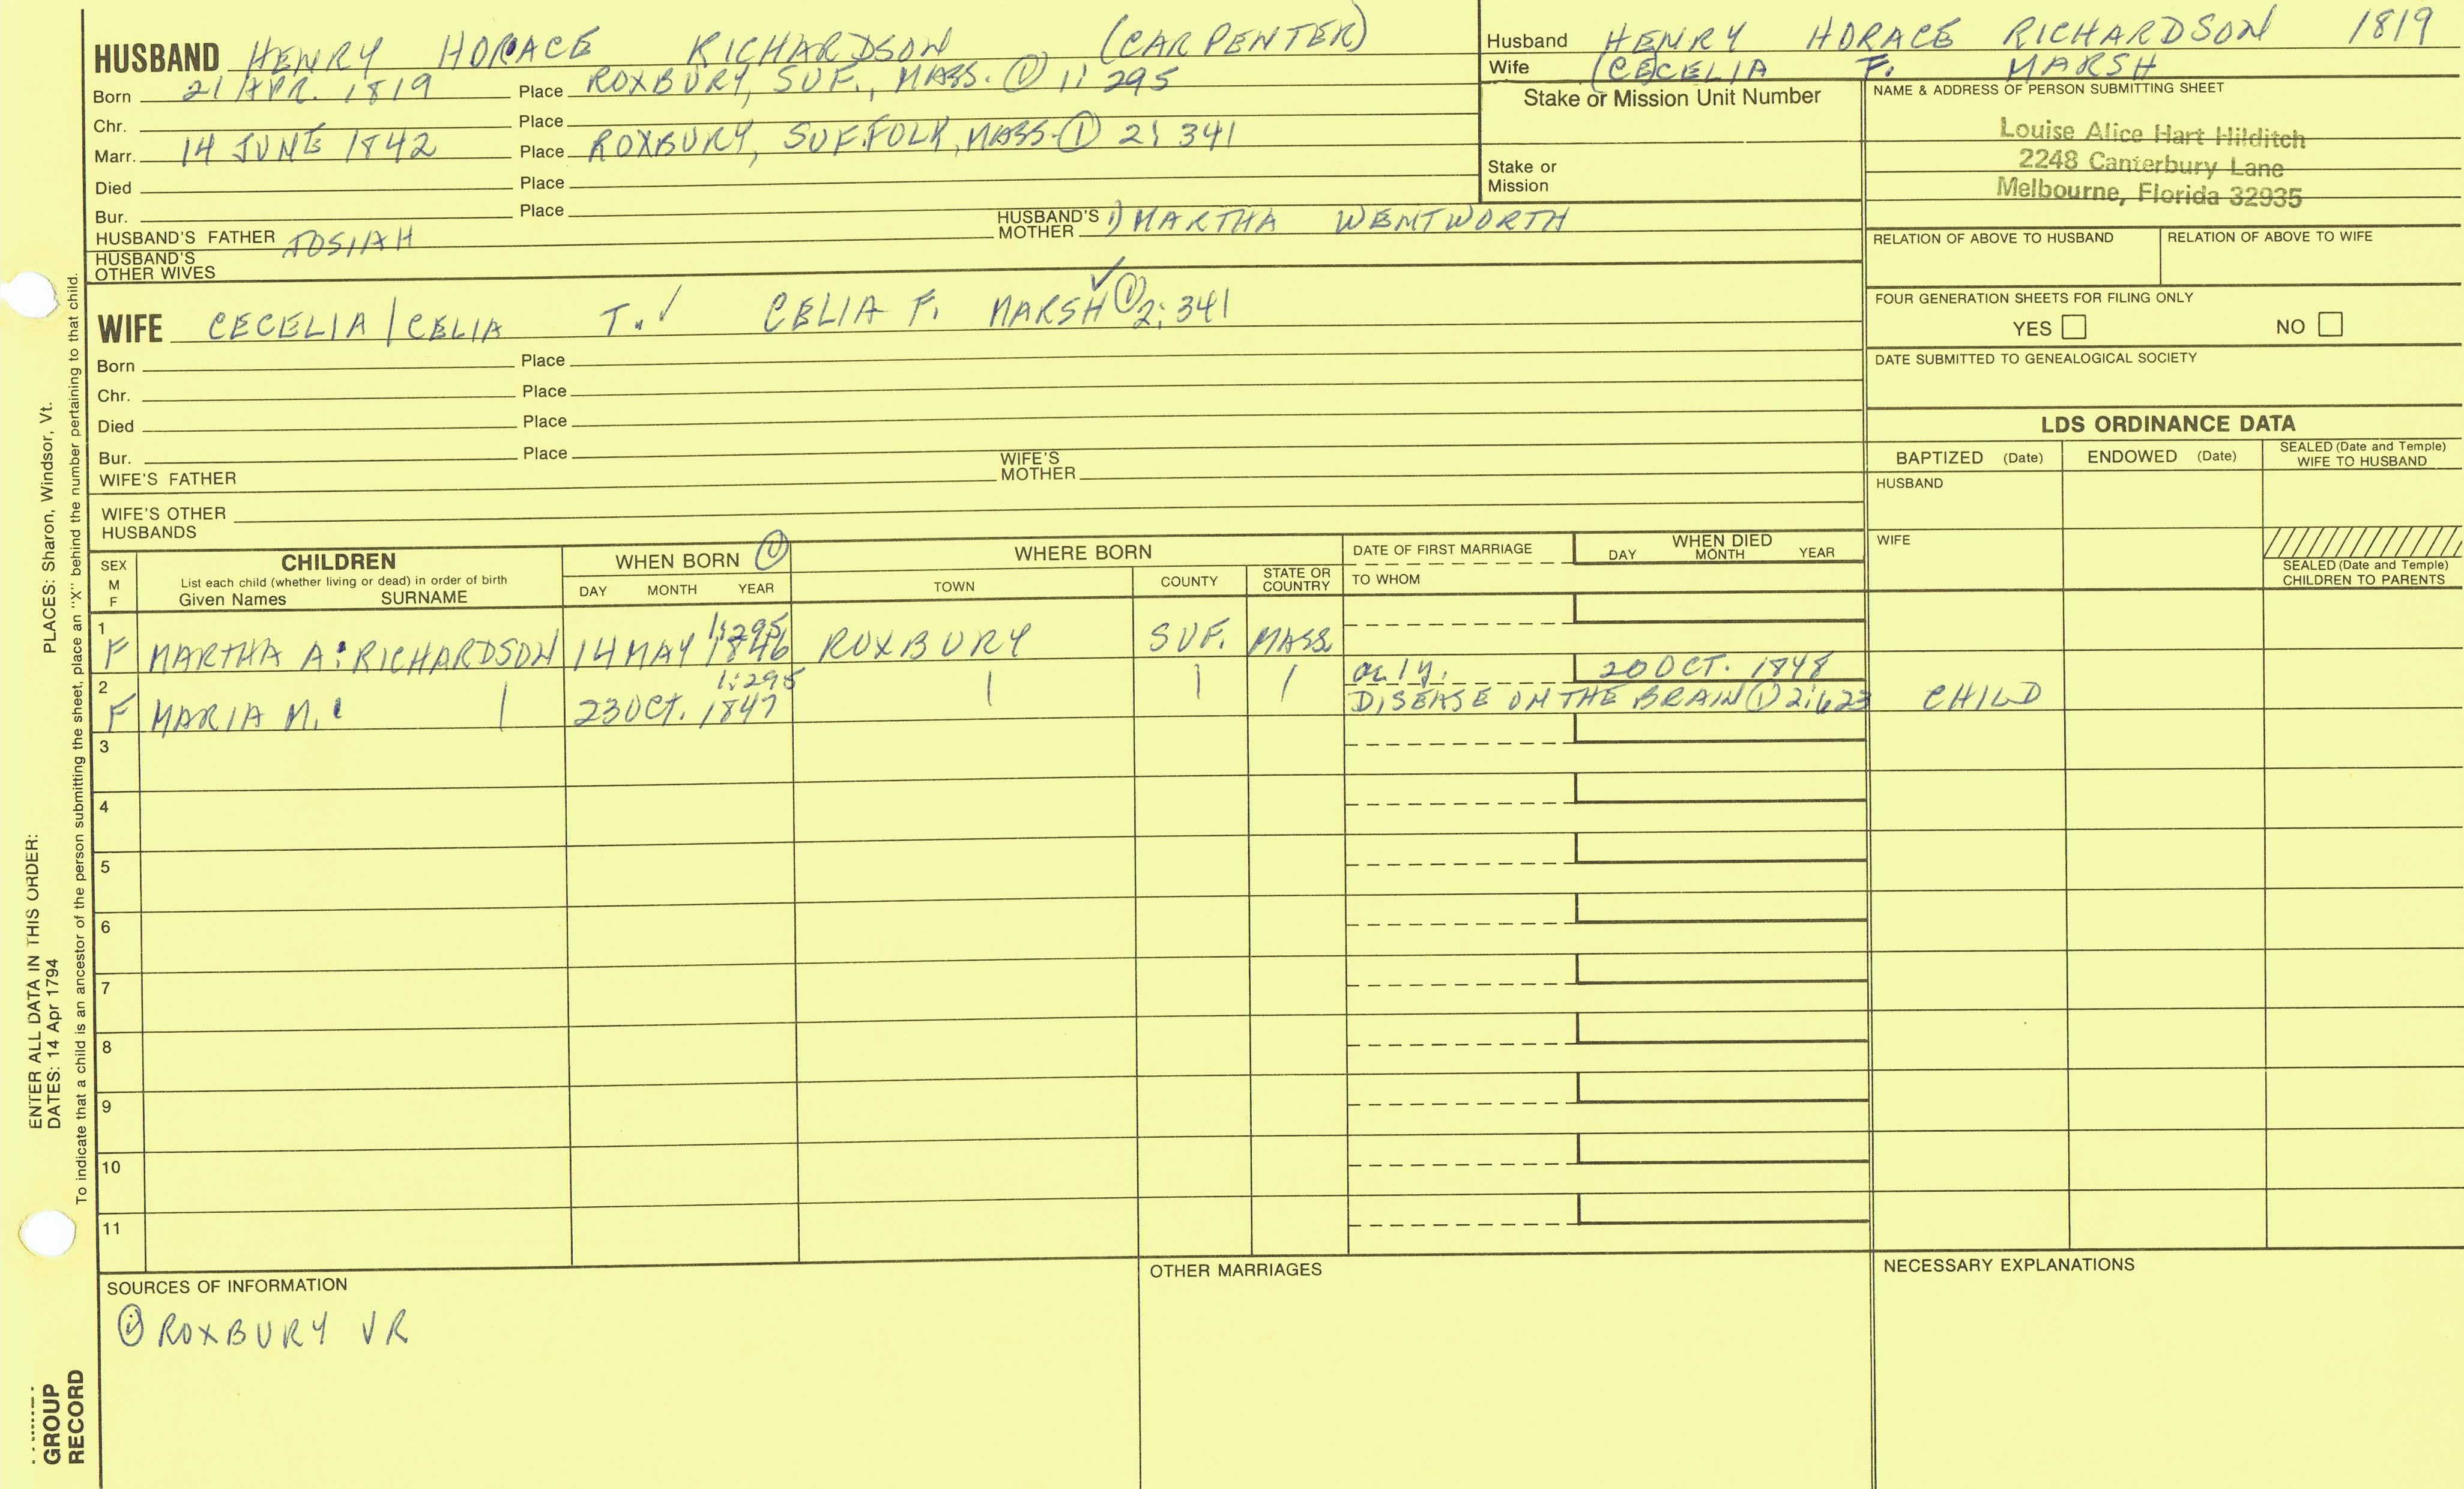 HUSBAND HENRY HORACE RICHARDSON (CARPENTER)
Born 21 APR. 1819 Place ROXBURY, SUF., MASS. ① 1: 295
Chr. Place
Marr. 14 JUNE 1842 Place ROXBURY, SUFFOLK, MASS. ① 2: 341
Died Place
Bur. Place
HUSBAND'S FATHER JOSIAH HUSBAND'S MOTHER 1) MARTHA WENTWORTH
HUSBAND'S OTHER WIVES
Husband HENRY HORACE RICHARDSON 1819
Wife (CECELIA F. MARSH
Stake or Mission Unit Number
Stake or Mission
NAME & ADDRESS OF PERSON SUBMITTING SHEET
Louise Alice Hart Hilditch
2248 Canterbury Lane
Melbourne, Florida 32935
RELATION OF ABOVE TO HUSBAND RELATION OF ABOVE TO WIFE
FOUR GENERATION SHEETS FOR FILING ONLY
YES NO
DATE SUBMITTED TO GENEALOGICAL SOCIETY
WIFE CECELIA / CELIA T. ! CELIA F. MARSH ✓ ① 2: 341
Born Place
Chr. Place
Died Place
Bur. Place
WIFE'S FATHER WIFE'S MOTHER
WIFE'S OTHER HUSBANDS
LDS ORDINANCE DATA
BAPTIZED (Date) ENDOWED (Date) SEALED (Date and Temple) WIFE TO HUSBAND
HUSBAND
WIFE
SEALED (Date and Temple) CHILDREN TO PARENTS
SEX M F
CHILDREN
List each child (whether living or dead) in order of birth
Given Names SURNAME
WHEN BORN ①
DAY MONTH YEAR
WHERE BORN
TOWN COUNTY STATE OR COUNTRY
DATE OF FIRST MARRIAGE
TO WHOM
WHEN DIED
DAY MONTH YEAR
1:295
1 F MARTHA A. RICHARDSON 14 MAY 1846 ROXBURY SUF. MASS.
1:295 ae 1 y. 20 OCT. 1848
2 F MARIA M. | 23 OCT. 1847 | | | DISEASE ON THE BRAIN ① 2:623 CHILD
3
4
5
6
7
8
9
10
11
SOURCES OF INFORMATION
① ROXBURY VR
OTHER MARRIAGES
NECESSARY EXPLANATIONS
ENTER ALL DATA IN THIS ORDER:
DATES: 14 Apr 1794 PLACES: Sharon, Windsor, Vt.
To indicate that a child is an ancestor of the person submitting the sheet, place an "X" behind the number pertaining to that child.
GROUP
RECORD